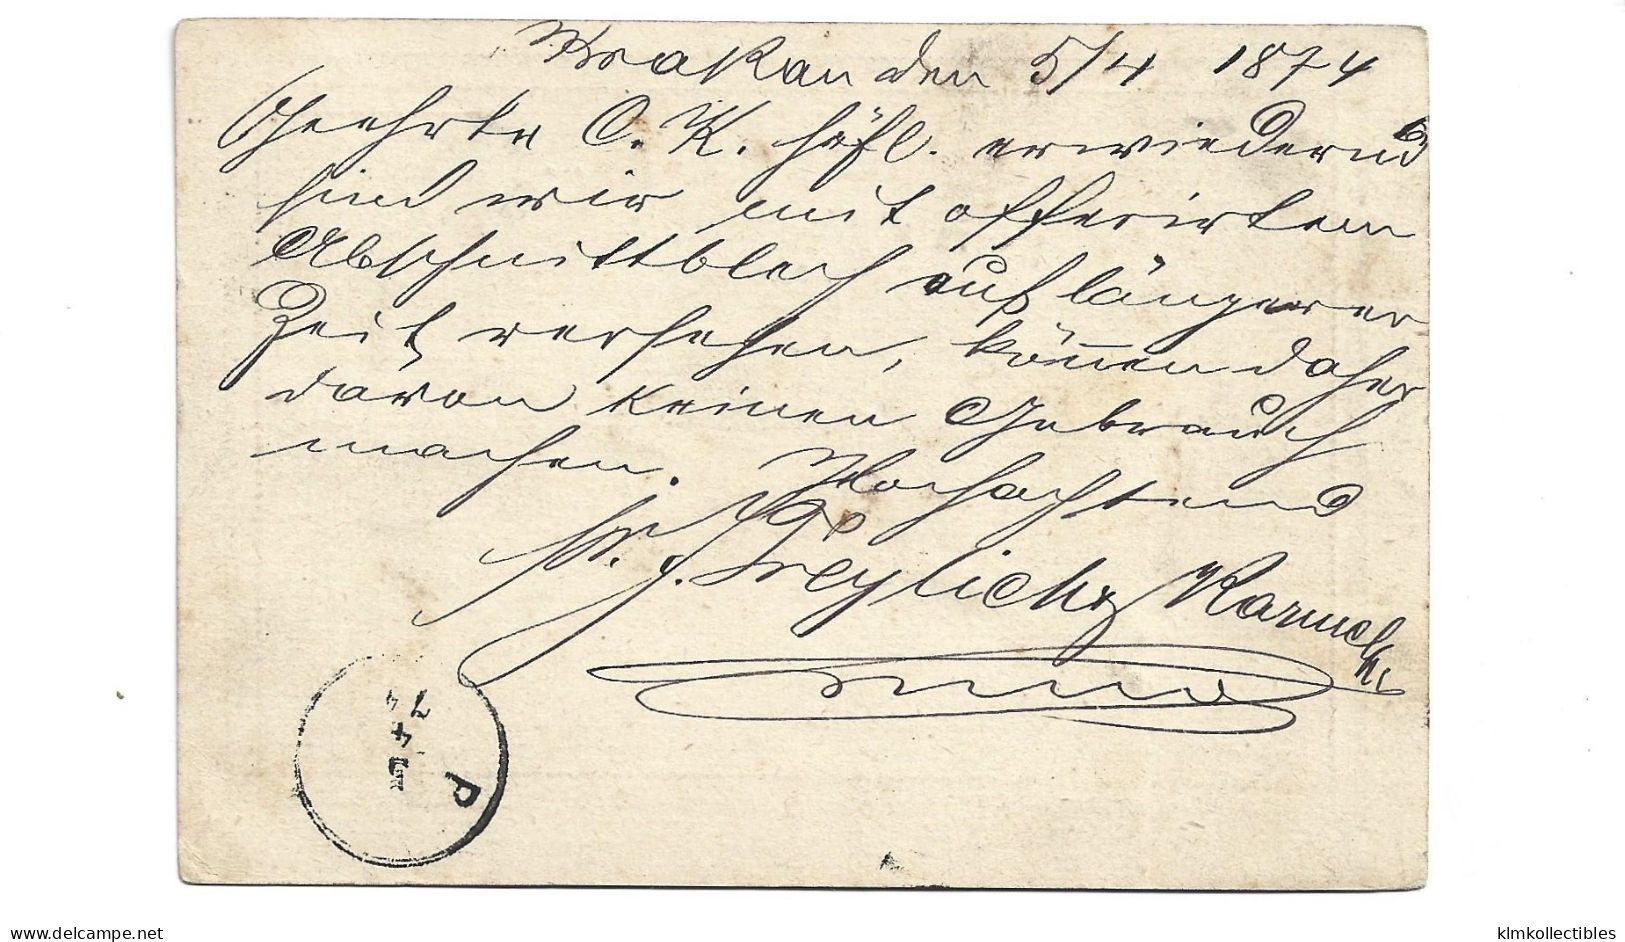 Krakau den 5/4 1874
Geehrte C. K. höfl. erwiedernd
sind wir mit offerirtem
Abschnittblech auf längerer
Zeit versehen, können daher
davon keinen Gebrauch
machen. Hochachtend
J. Freylich &
P
5
4
74
www.delcampe.net
klmkollectibles